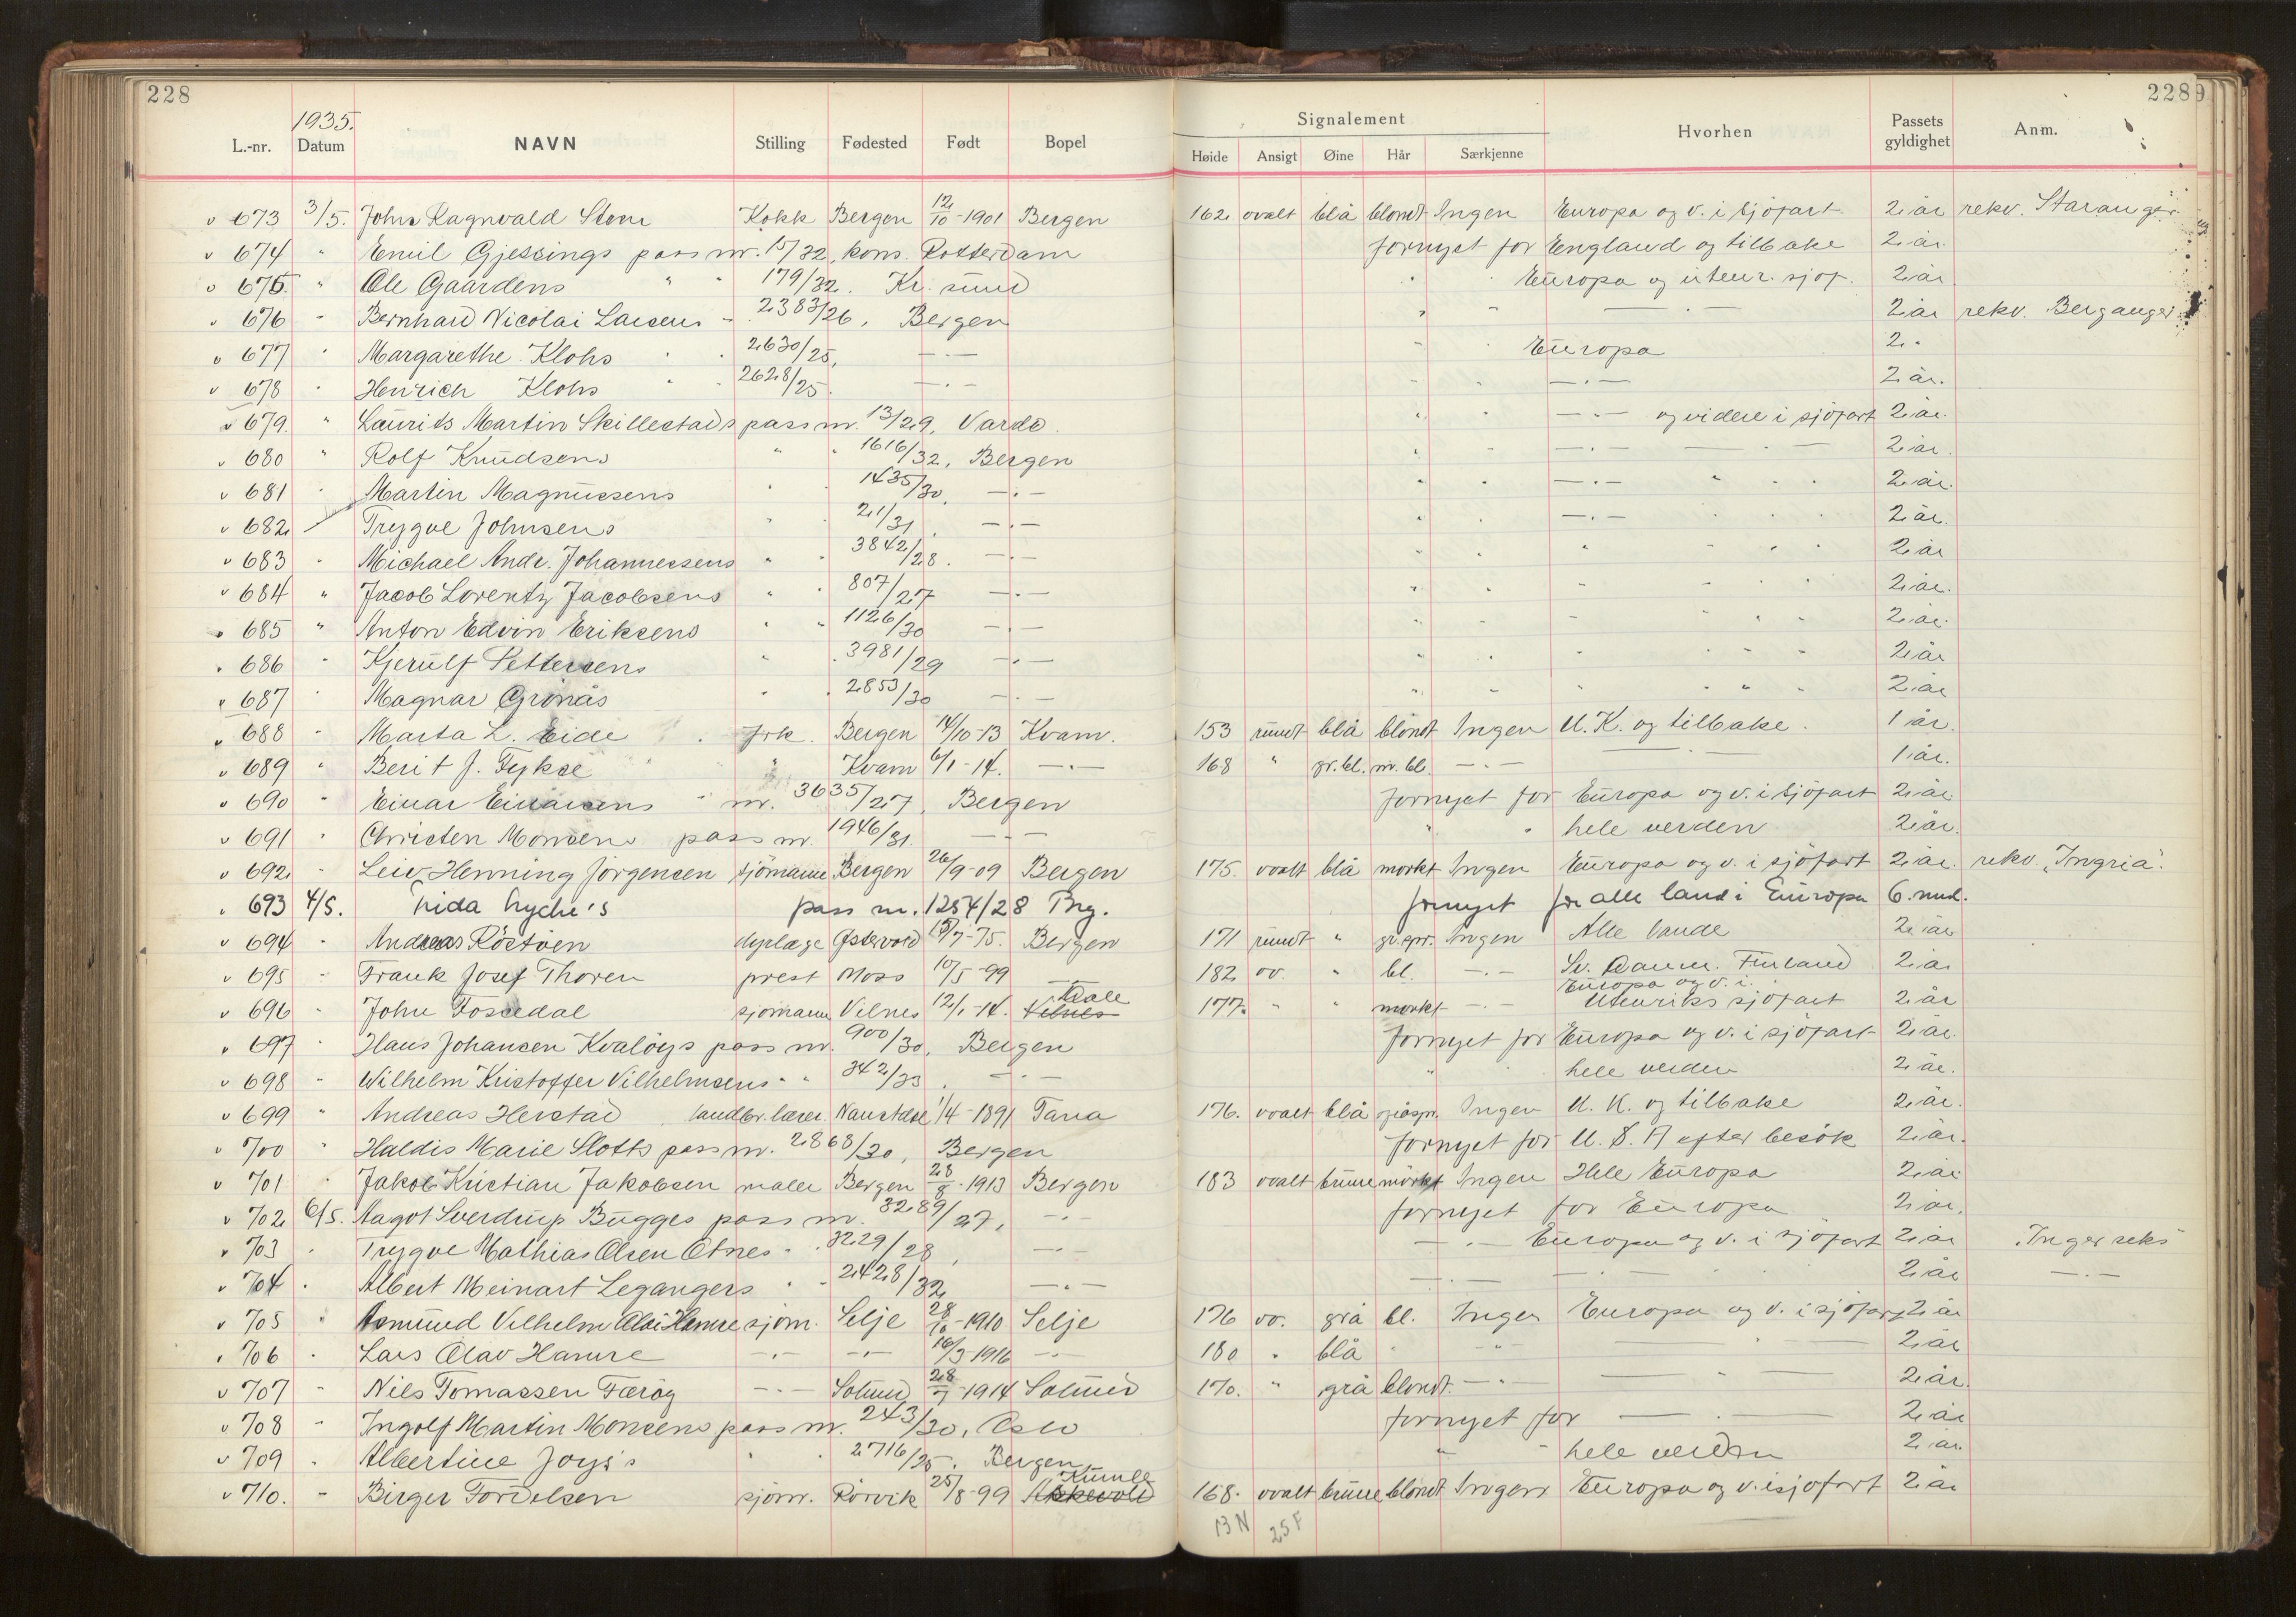 228
2289
1935.
L.-nr. Datum NAVN Stilling Fødested Født Bopel
Signalement Hvorhen Passets gyldighet Anm.
Høide Ansigt Øine Hår Særkjenne
673 3/5. John Ragnvald Kokk Bergen 12/10-1901 Bergen 162 ovalt blå blondt Ingen Europa og v. i sjøfart 2 år rekv. Stavanger
674 " Emil Gjessings pass nr. 15/32, kons. Rotterdam fornyet for England og tilbake 2 år.
675. " Ole Gaardens " " 179/32. Kr. sund " " Europa og utenr. sjøf. 2 år
676 " Bernhard Nicolai Larsens " 2383/26, Bergen " " — " — 2 år rekv. Beranger
677 " Margarethe Klohs " " 2630/25, —"— " " Europa 2 "
678 " Henrich Klohs " " 2628/25. —"— " " —"— 2 år.
679. " Laurits Martin Skillestads pass nr. 13/29, Vardø. " " —"— og videre i sjøfart 2 år.
680 " Rolf Knudsens " " 1616/32, Bergen " " —"— — " — 2 år.
681 " Martin Magnussens " " 1435/30, —"— " " —"— " " " 2 år.
682 Trygve Johnsens " " 21/31, —"— " " —"— " " " 2 år.
683 " Michael Andr. Johannessens " " 3842/28. —"— " " " " " " 2 år
684 " Jacob Lorentz Jacobsens " " 807/27 —"— " " " " " " 2 år.
685 " Anton Edvin Eriksens " " 1126/30 —"— " " " " " " 2 år.
686 " Kjerulf Pettersens " " 3981/29 —"— " " " " " " 2 år
687 " Magnar Grönås " " 2853/30 —"— " " " " " " 2 år
688 " Marta L. Eide frk. Bergen 14/10-13 Kvam. 153 rundt blå blondt Ingen U.K. og tilbake. 1 år.
689 " Berit J. Fykse " Kvam 6/1-14. —"— 168 " gr.bl. m. bl. —"— — " — 1 år.
690 " Einar Einarsens " nr. 3635/27, Bergen fornyet for Europa og v. i sjöfart 2 år.
691 " Christen Monsens pass nr. 1946/31. —"— " " hele verden 2 år.
692 " Leiv Henning Jörgensen sjömann Bergen 26/9-09 Bergen 175. ovalt blå mørkt Ingen Europa og v. i sjöfart 2 år. rekv. "Ingria".
693 4/5. pass nr. 1254/28 Brg. fornyet for alle land i Europa 6. mnd.
694 " Andreas dyrlæge 15/7-75. Bergen 171 rundt " Ingen Alle lande 2 år
695 " Frank Josef Thoren prest Moss 10/5-99 — 182 ov. " bl. —"— Sv. Danm. Finland 2 år
696 " John Fossedal sjömann Vilnes 12/1-14. Vilnes Dale 177. " " mørkt —"— Europa og v. i. Utenriks sjöfart 2 år
697 " Hans Johansen Kvalöys pass nr. 900/30, Bergen fornyet for Europa og v. i sjöfart 2 år.
698 " Wilhelm Kristoffer Vilhelmsens " " 342/33. —"— " " hele verden 2 år.
699 " Andreas Herstad landbr.lærer Naustdal 1/4-1891 Tana 176. ovalt blå gråspr. Ingen U.K. og tilbake 2 år.
700 " Haldis Marie Slotts pass nr. 2868/30, Bergen fornyet for U.S.A efter besök 2 år.
701 " Jakob Kristian Jakobsen maler Bergen 28/8-1913 Bergen 183 ovalt brune mørkt Ingen Hele Europa 2 år
702 6/5. Aagot Sverdrup Bugges pass nr. 3289/27, —"— fornyet for Europa 2 år.
703 " Trygve Mathias Olsen Otnes " " 3229/28, —"— —"— Europa og v. i sjöfart 2 år
704 " Albert Meinart Legangers " " 2428/32 —"— —"— — " — 2 år —"—
705 " Asmund Vilhelm sjöm. Selje 28/10-1910 Selje 176 ov. grå bl. Ingen Europa og v. i sjöfart 2 år
706 " Lars Olav Hamre —"— —"— 16/3-1916 —"— 180 " blå " —"— — " — 2 år
707 " Nils Tomassen Færöy —"— Solund 28/7-1914 Solund 170. " grå blondt —"— — " — 2 år.
708 " Ingolf Martin Monsens pass nr. 243/30, Oslo fornyet for — " — 2 år
709 " Albertine Joys's " " 2716/25. Bergen " " hele verden 2 år.
710. " Birger sjöm. Rörvik 25/8-99 168. ovalt brune blondt Ingen Europa og v. i sjöfart 2 år
13 N 25 F